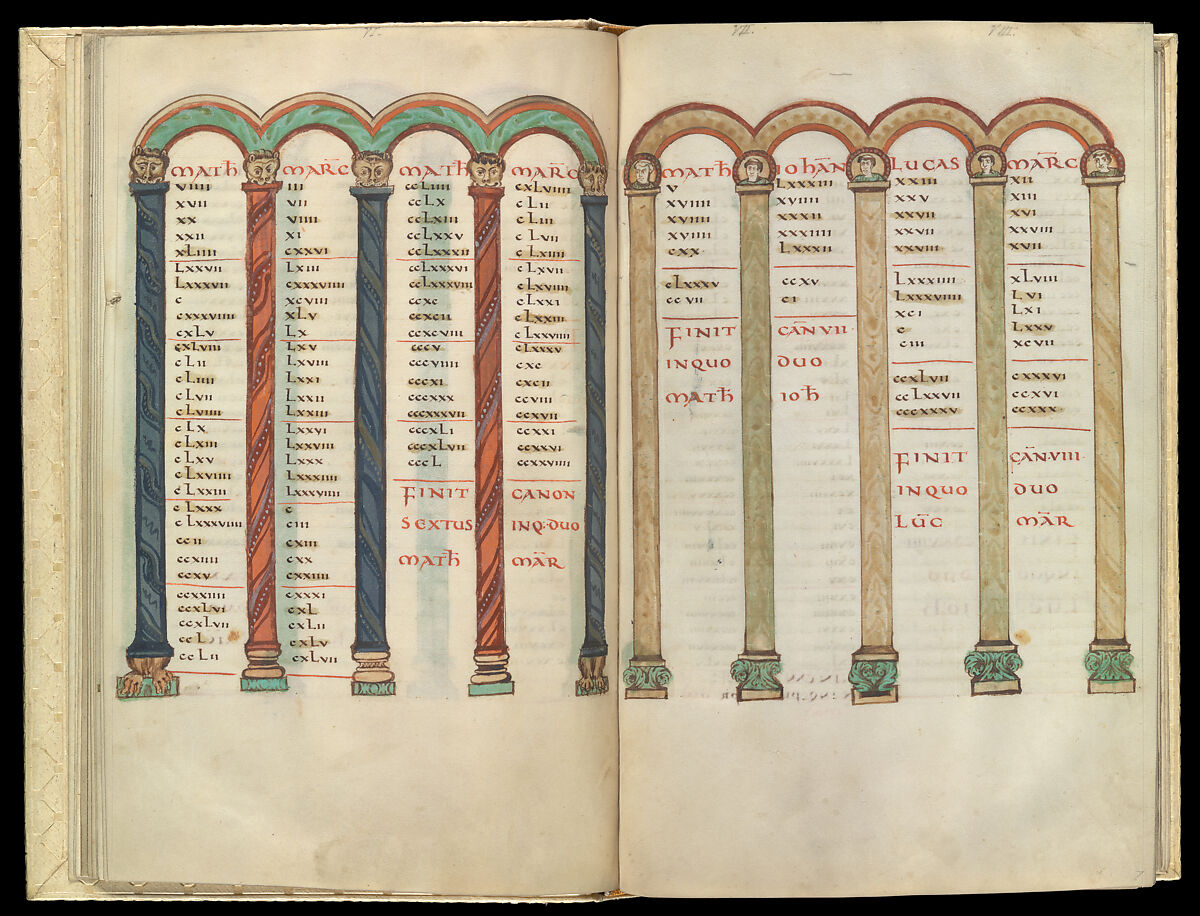 VI.
MATH
VIIII
XVII
XX
XXII
XLIIII
LXXVII
LXXXVII
C
CXXXVIIII
CXLV
CXLVIII
CLII
CLIIII
CLVII
CLVIIII
CLX
CLXIII
CLXV
CLXVIIII
CLXXIII
CLXXX
CLXXXVIIII
CCII
CCXIIII
CCXV
CCXXIIII
CCXLVI
CCXLVII
CCL
CCLII
MARC
III
VII
VIIII
XI
CXXVI
LXIII
CXXXVIIII
XCVIII
XLV
LX
LXV
LXVIII
LXXI
LXXII
LXXIII
LXXVI
LXXVIII
LXXX
LXXXIIII
LXXXVIIII
C
CIII
CXIII
CXX
CXXIIII
CXXXI
CXL
CXLII
CXLV
CXLVII
MATH
CCLIIII
CCLX
CCLXIII
CCLXXV
CCLXXXII
CCLXXXVI
CCLXXXVIII
CCXC
CCXCII
CCXCVIII
CCCV
CCCVIIII
CCCXI
CCCXXX
CCCXXXVII
CCCXLI
CCCXLVII
CCCL
FINIT
SEXTUS
MATH
MARC
CXLVIIII
CLII
CLIII
CLVII
CLXIIII
CLXVII
CLXVIIII
CLXXI
CLXXIII
CLXXVIIII
CLXXXV
CXC
CXCII
CCVIII
CCXVII
CCXXI
CCXXVI
CCXXVIIII
CANON
INQ·DUO
MAR
VII.
MATH
V
XVIIII
XVIIII
XVIIII
CXX
CLXXXV
CCVII
FINIT
INQUO
MATH
IOHAN
LXXXIII
XVIIII
XXXII
XXXIIII
LXXXII
CCXV
CI
CAN VII·
DUO
IOH
VIII.
LUCAS
XXIII
XXV
XXVII
XXVII
XXVIII
LXXXIIII
LXXXVIIII
XCI
C
CIII
CCXLVII
CCLXXVII
CCCXXXV
FINIT
INQUO
LUC
MARC
XII
XIII
XVI
XXVIII
XVII
XLVIII
LVI
LXI
LXXV
XCVII
CXXXVI
CCXVI
CCXXX
CAN·VIII·
DUO
MAR